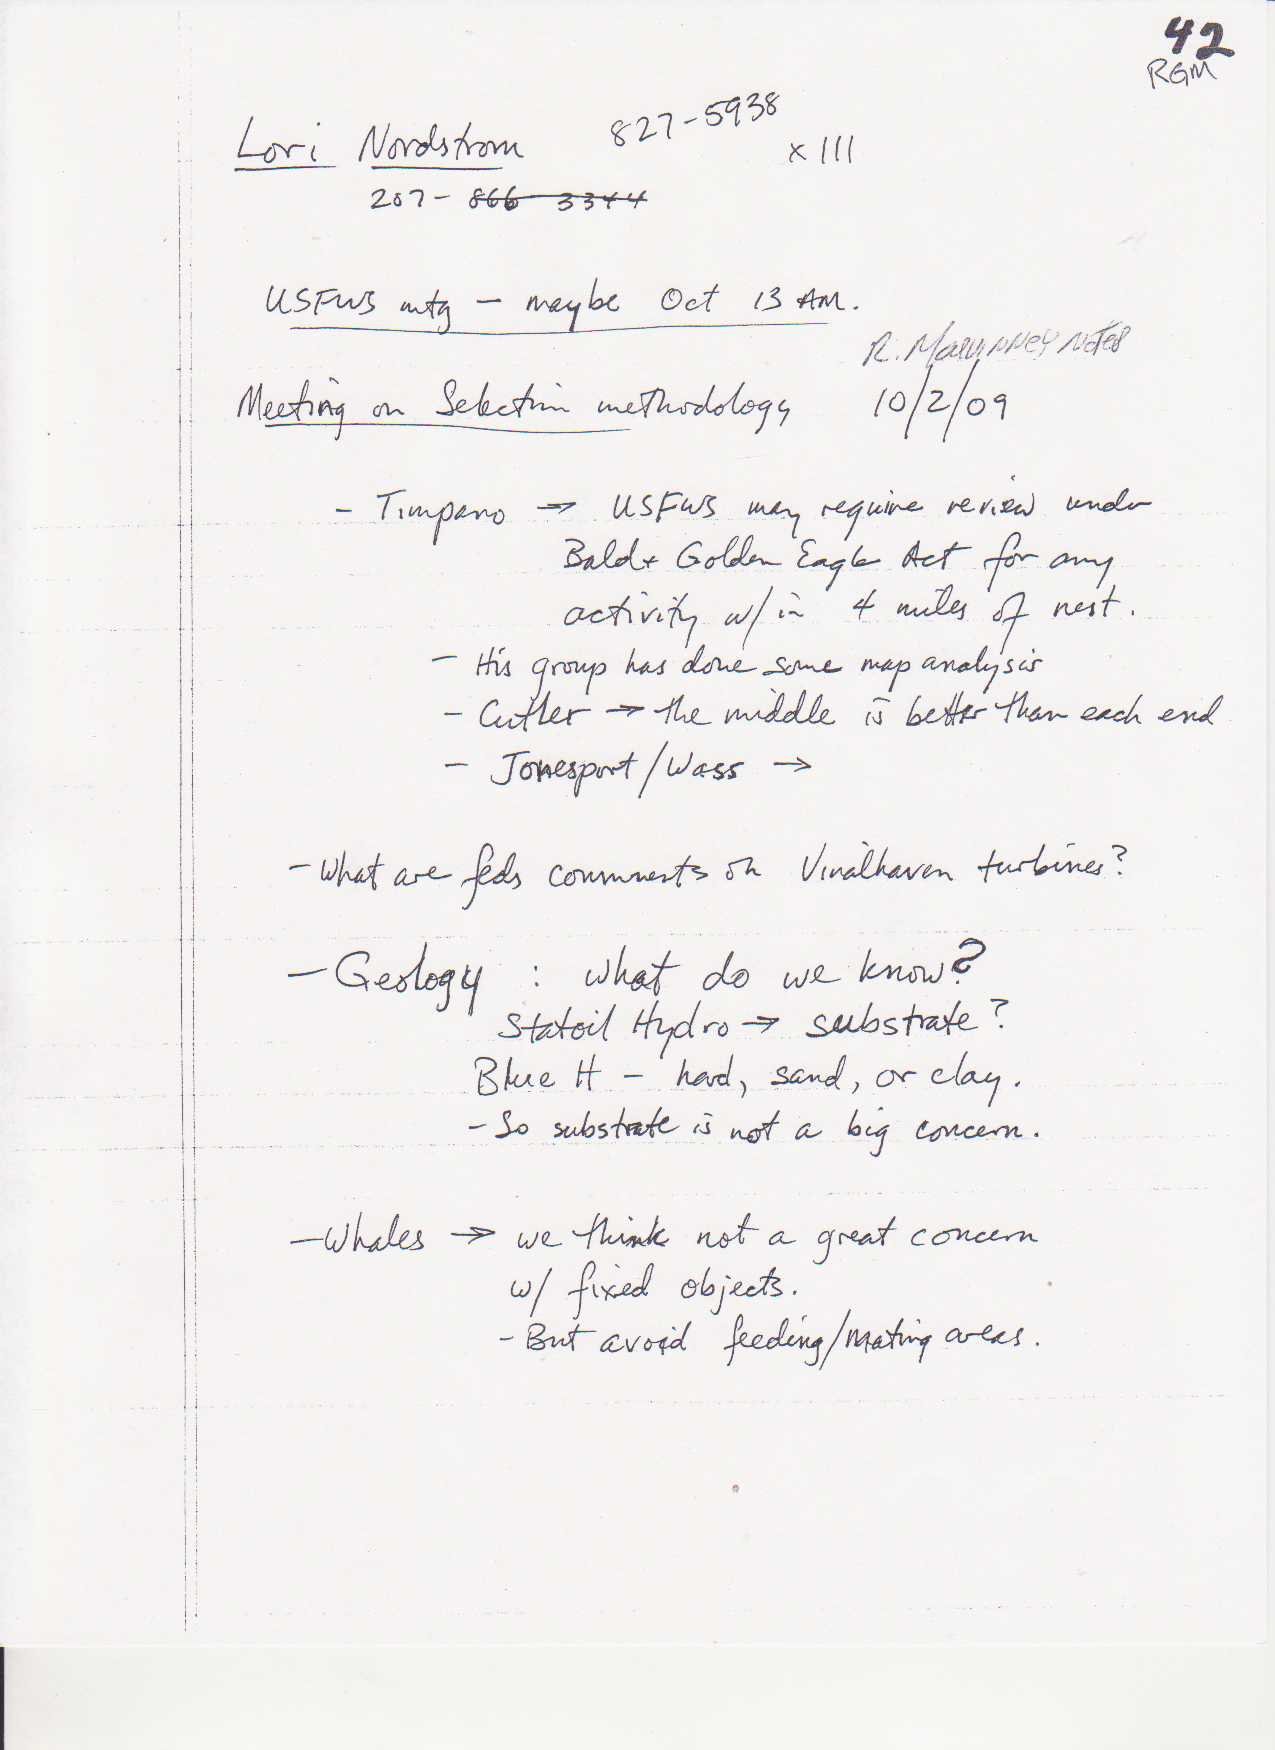 42
RGM
Lori Nordstrom 827-5938 x 111
207- 866 3344
USFWS mtg - maybe Oct 13 AM.
R. Marvinney Notes
Meeting on Selection methodology 10/2/09
- Timpano → USFWS may require review under
Bald + Golden Eagle Act for any
activity w/in 4 miles of nest.
- His group has done some map analysis
- Cutler → the middle is better than each end
- Jonesport/Wass →
- What are feds comments on Vinalhaven turbines?
- Geology : what do we know?
Statoil Hydro → substrate?
Blue H - hard, sand, or clay.
- So substrate is not a big concern.
- Whales → we think not a great concern
w/ fixed objects.
- But avoid feeding/mating areas.